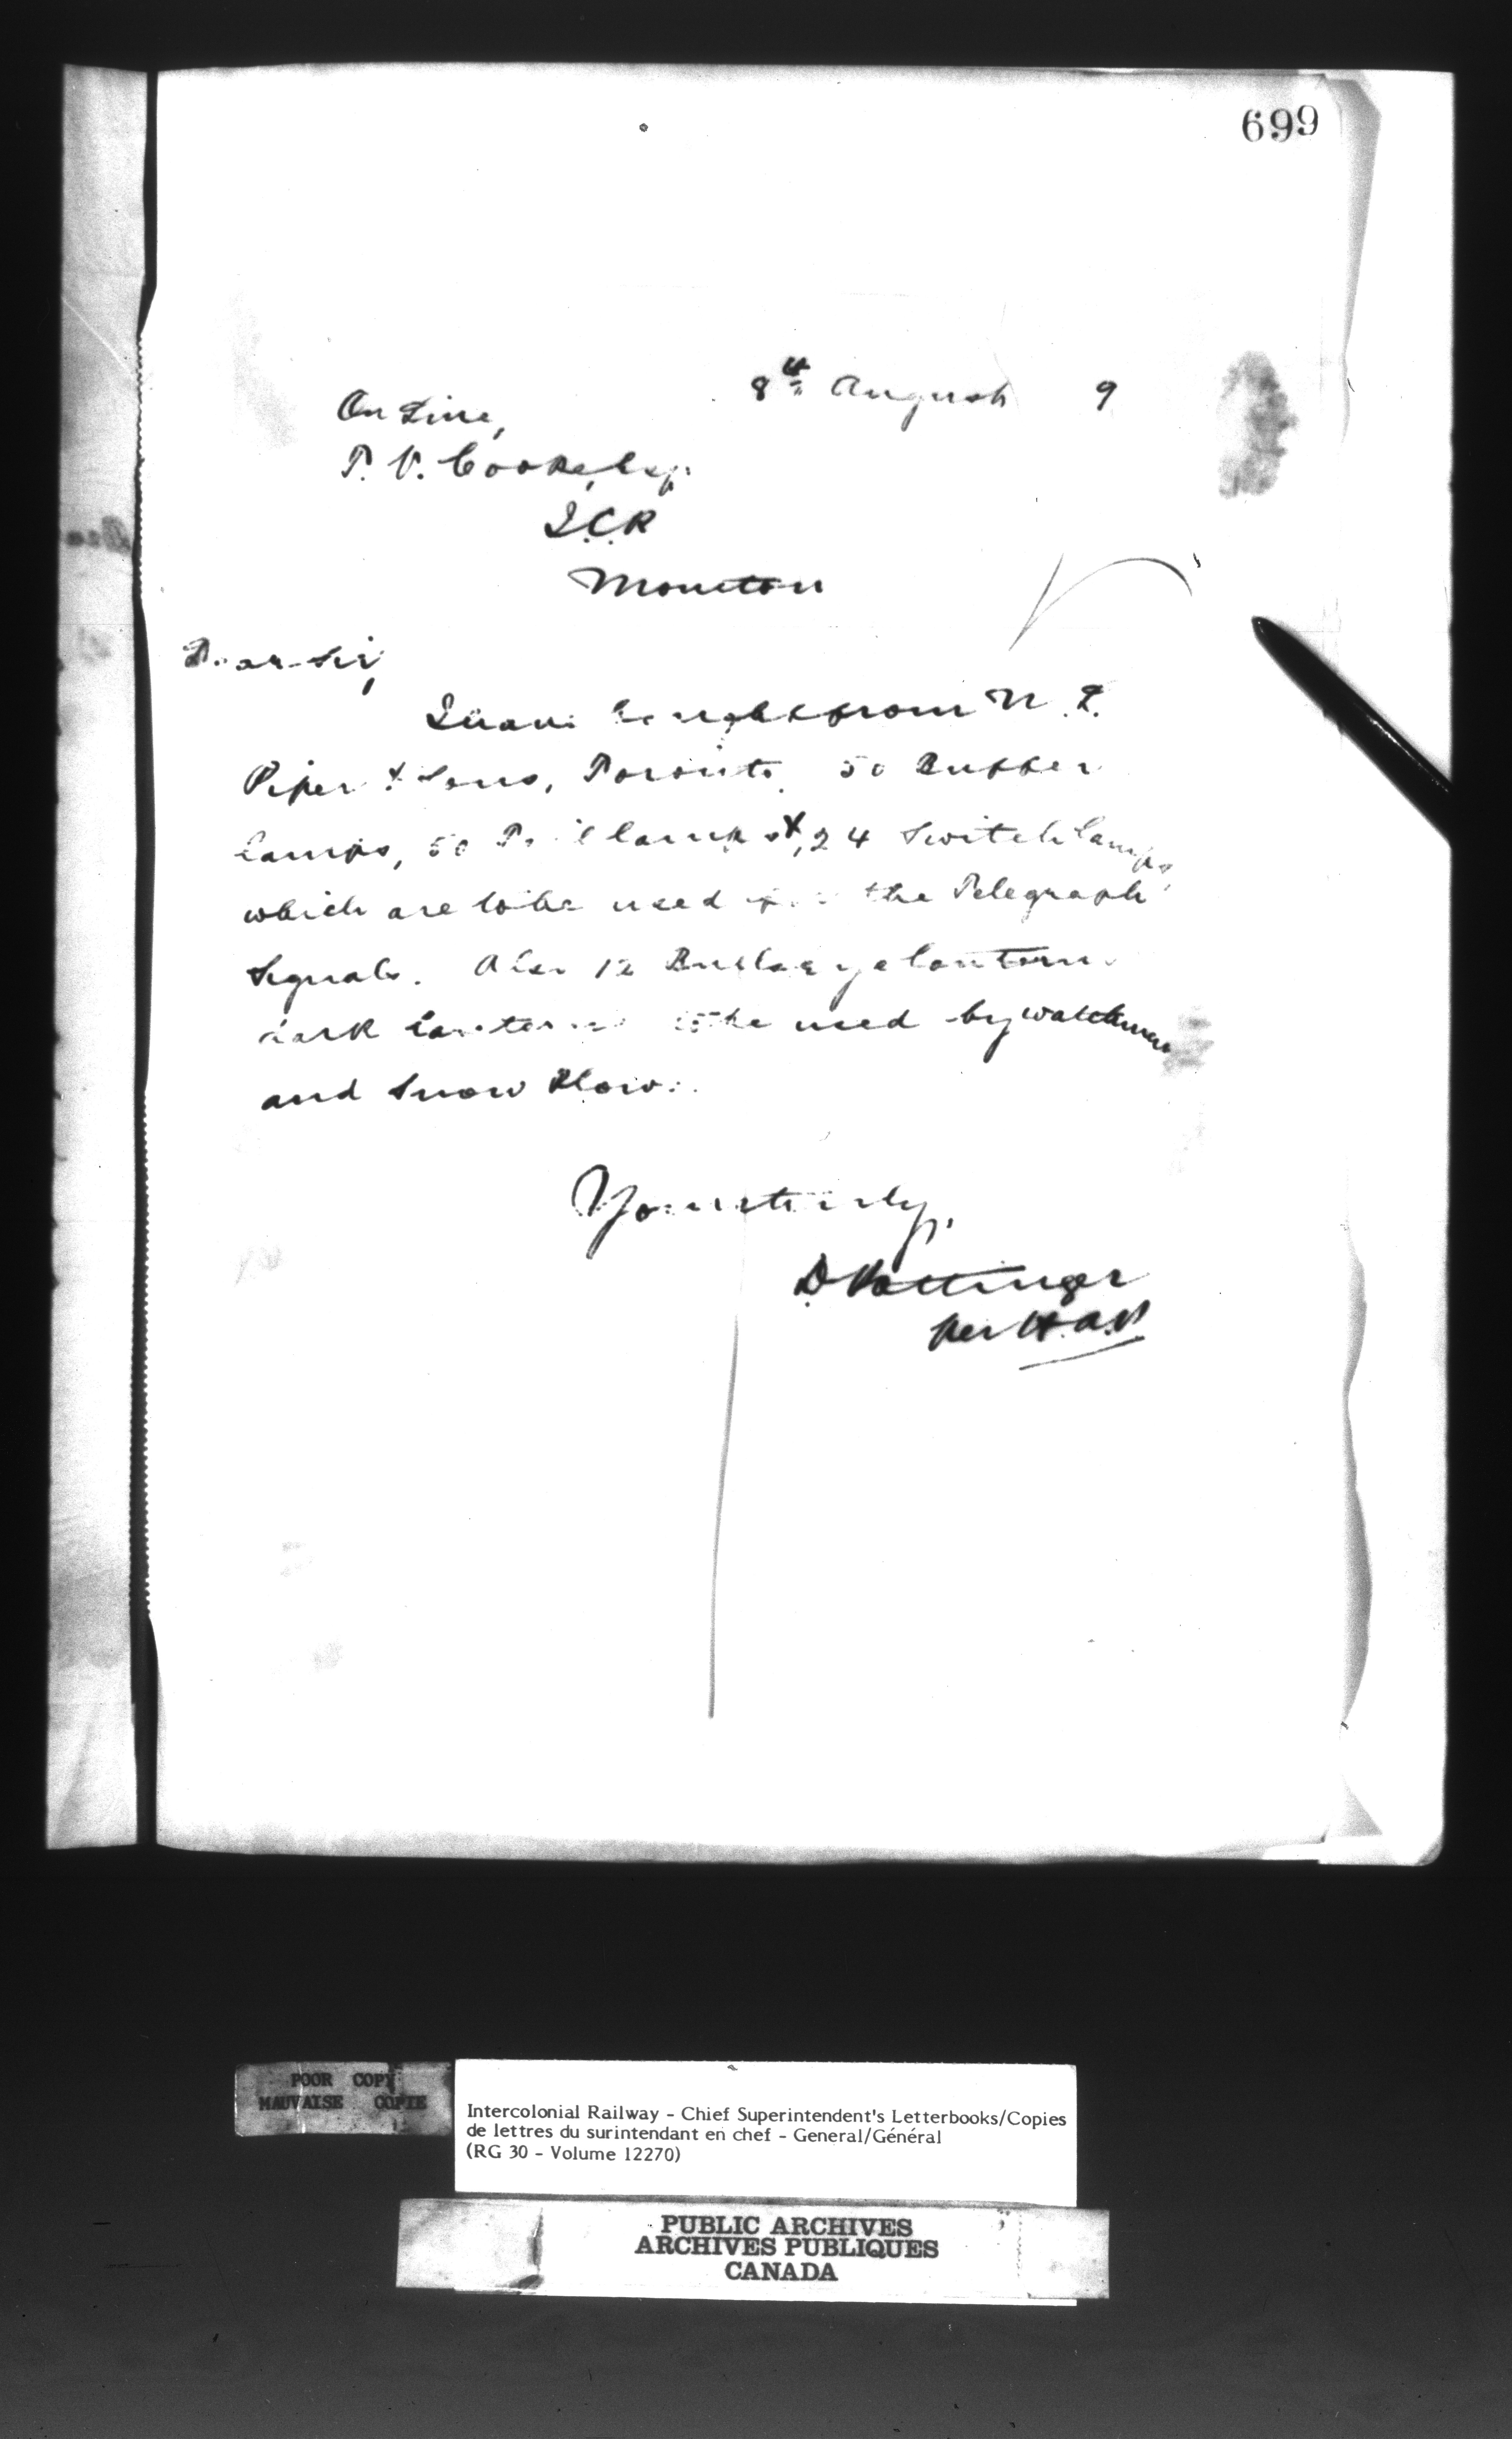 699
8th August 9
On Line,
T. V. Cooke, Esq.
I.C.R
Moncton
Dear Sir,
I have bought from N. L.
Piper & Sons, Toronto, 50 Buffer
lamps, 50 Tail lamps &, 24 Switch lamps,
which are to be used the Telegraph
Signals. Also 12 Bullseye lantern
dark lanterns to be used by watchmen
and Snow Plows.
Yours truly,
D Pottinger
Per H.A.P
POOR COPY
MAUVAISE COPIE
Intercolonial Railway - Chief Superintendent's Letterbooks/Copies
de lettres du surintendant en chef - General/Général
(RG 30 - Volume 12270)
PUBLIC ARCHIVES
ARCHIVES PUBLIQUES
CANADA